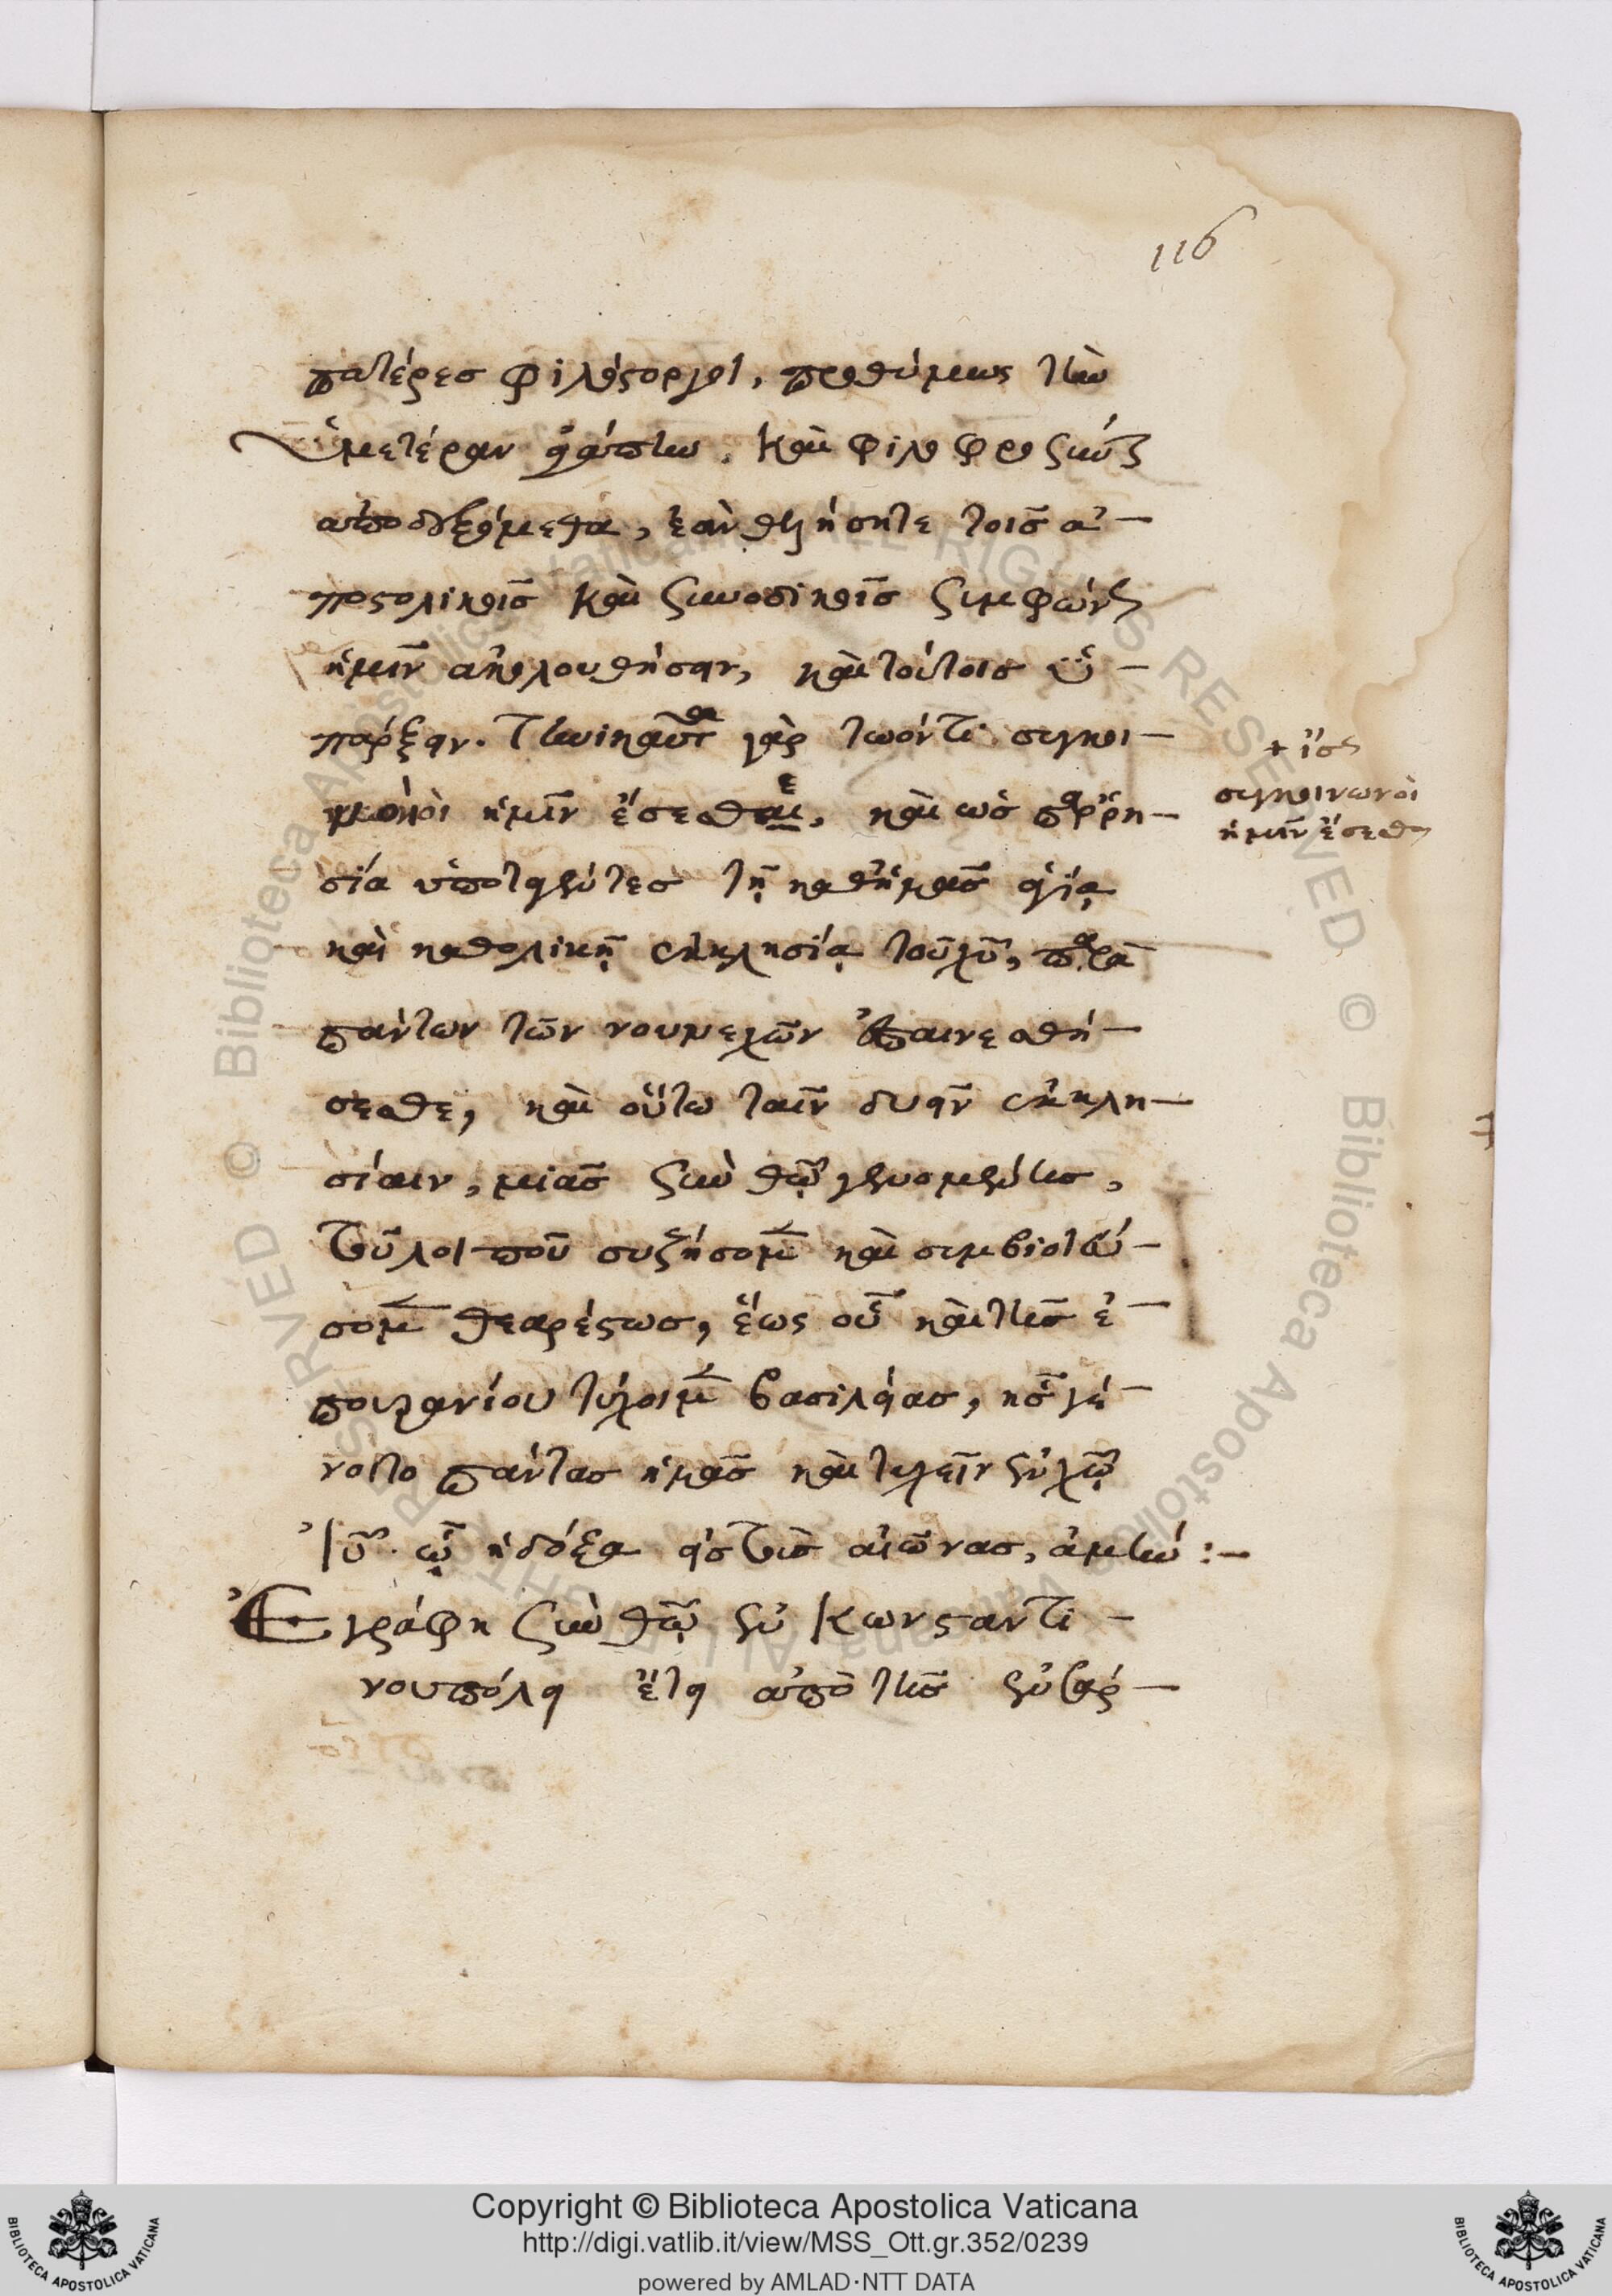 116
πατέρες φιλόστοργοι, προθύμως τὴν
ὑμετέραν ἀγάπην, καὶ φιλοφρόνως
ἀποδεξόμεθα, ἐὰν θελήσητε τοῖς ἀ-
ποστολικοῖς καὶ συνοδικοῖς συμφώνως
ἡμῖν ἀκολουθῆσαι, καὶ τούτοις ὑ-
πεῖξαι. Τηνικαῦτα γὰρ τωόντι συγκοι-
ἡμῖν ἔσεσθε, καὶ ὡς παρρη-
+ ἴσως
συγκοινωνοὶ
ἡμῖν ἔσεσθε
σία ὑποταγέντες τῇ καθ' ἡμᾶς ἁγίᾳ
καὶ καθολικῇ ἐκκλησίᾳ τοῦ χῦ, παρὰ
πάντων τῶν νουνεχῶν ἐπαινεθή-
σεσθε, καὶ οὕτω ταῖν δυεῖν ἐκκλη-
σίαιν, μιᾶς σὺν θῷ γενομένης,
τοῦ λοιποῦ συζήσομεν καὶ συμβιοτεύ-
σομεν θεαρέστως, ἕως οὗ καὶ τῆς ἐ-
πουρανίου τύχοιμεν βασιλείας, ἧς γέ-
νοιτο πάντας ἡμᾶς καὶ τυχεῖν ἐν χῷ
Ἰῦ. ᾧ ἡ δόξα εἰς τοὺς αἰῶνας, ἀμήν :-
Ἐγράφη σὺν θῷ ἐν Κωνσταντι-
νουπόλει ἔτει ἀπὸ τῆς ἐνσάρ-
Copyright © Biblioteca Apostolica Vaticana
http://digi.vatlib.it/view/MSS_Ott.gr.352/0239
powered by AMLAD·NTT DATA
BIBLIOTECA APOSTOLICA VATICANA
BIBLIOTECA APOSTOLICA VATICANA